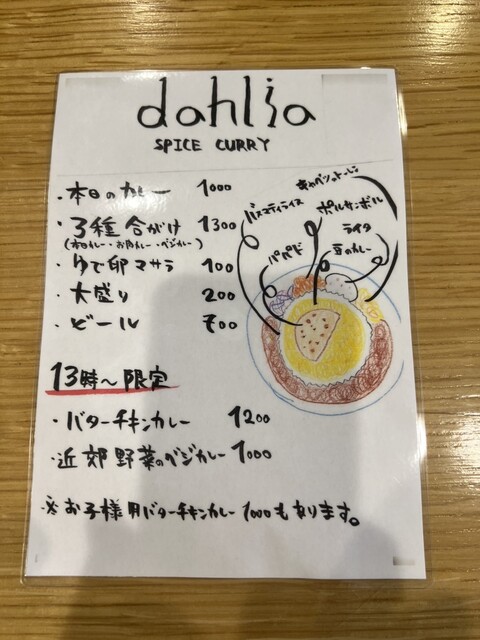 dahlia
SPICE CURRY
・本日のカレー 1000
・3種合がけ 1300
(本日カレー・お肉カレー・ベジカレー)
・ゆで卵マサラ 100
・大盛り 200
・ビール 700
バスマティライス
ポルサンボル
ライタ
パパド
豆のカレー
13時〜限定
・バターチキンカレー 1200
・近郊野菜のベジカレー 1000
※お子様用バターチキンカレー 1000もあります。